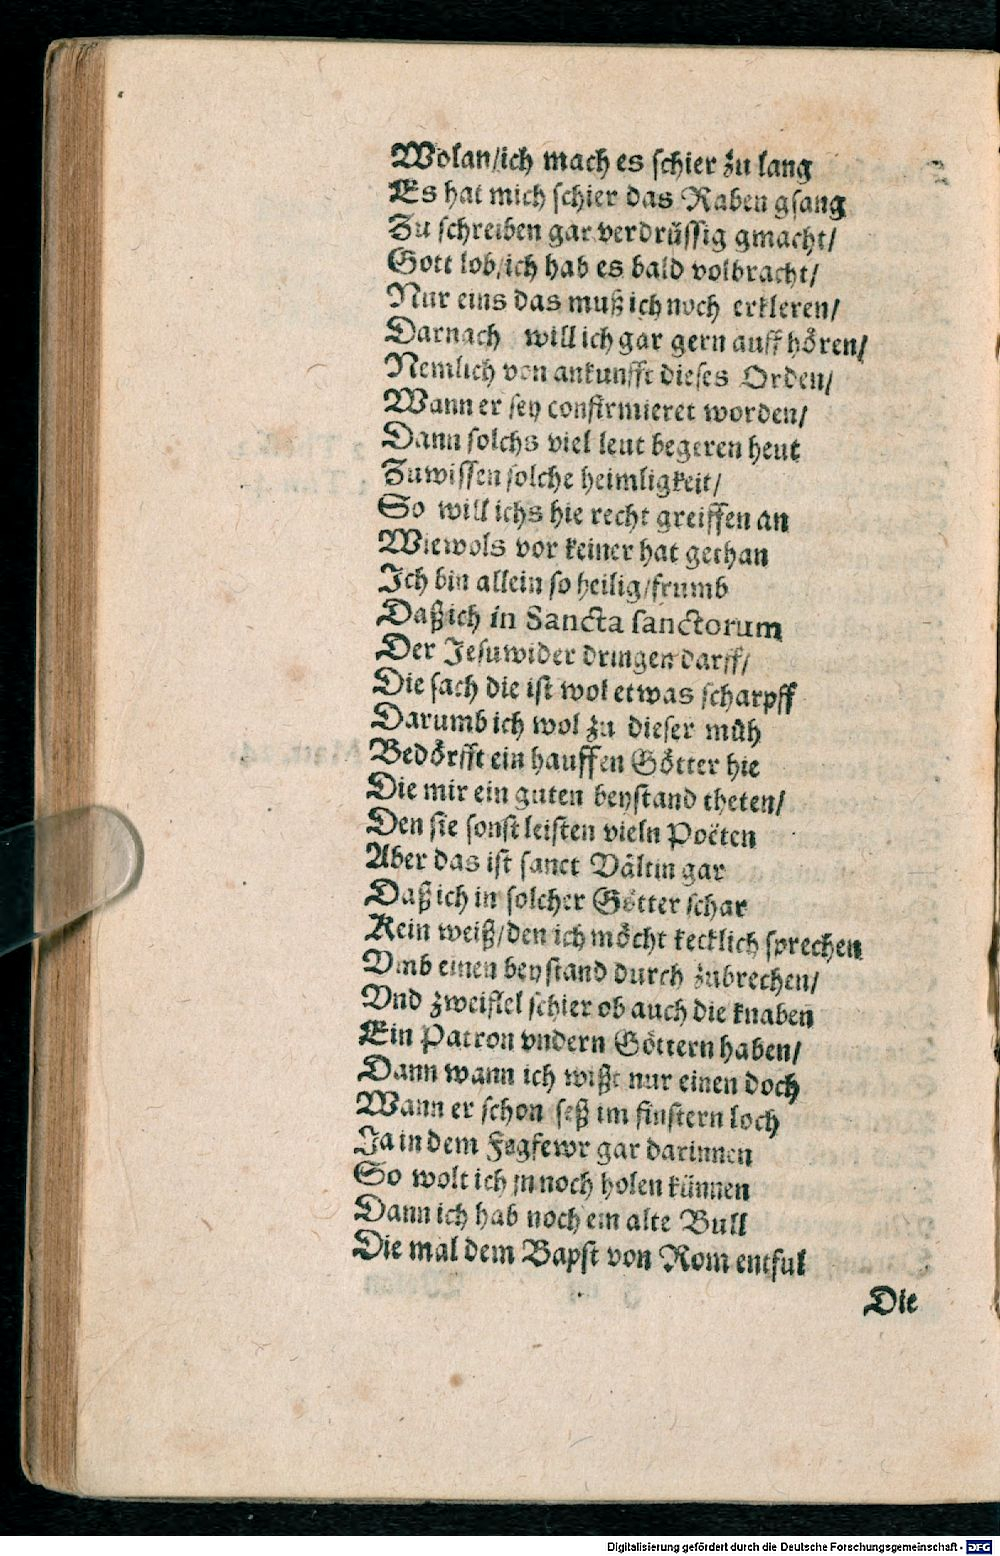 Wolan/ich mach es schier zu lang
Es hat mich schier das Raben gsang
Zu schreiben gar verdrüssig gmacht/
Gott lob/ich hab es bald volbracht/
Nur eins das muß ich noch erkleren/
Darnach will ich gar gern auff hören/
Nemlich von ankunfft dieses Orden/
Wann er sey confirmieret worden/
Dann solchs viel leut begeren heut
Zuwissen solche heimligkeit/
So will ichs hie recht greiffen an
Wiewols vor keiner hat gethan
Ich bin allein so heilig/frumb
Daß ich in Sancta sanctorum
Der Jesuwider dringen darff/
Die sach die ist wol etwas scharpff
Darumb ich wol zu dieser müh
Bedörfft ein hauffen Götter hie
Die mir ein guten beystand theten/
Den sie sonst leisten vieln Poëten
Aber das ist sanct Vältin gar
Daß ich in solcher Götter schar
Kein weiß/den ich möcht kecklich sprechen
Vmb einen beystand durch zubrechen/
Vnd zweiffel schier ob auch die knaben
Ein Patron vndern Göttern haben/
Dann wann ich wißt nur einen doch
Wann er schon seß im finstern loch
Ja in dem Fegfewr gar darinnen
So wolt ich jn noch holen künnen
Dann ich hab noch ein alte Bull
Die mal dem Bapst von Rom entful
Die
Digitalisierung gefördert durch die Deutsche Forschungsgemeinschaft - DFG